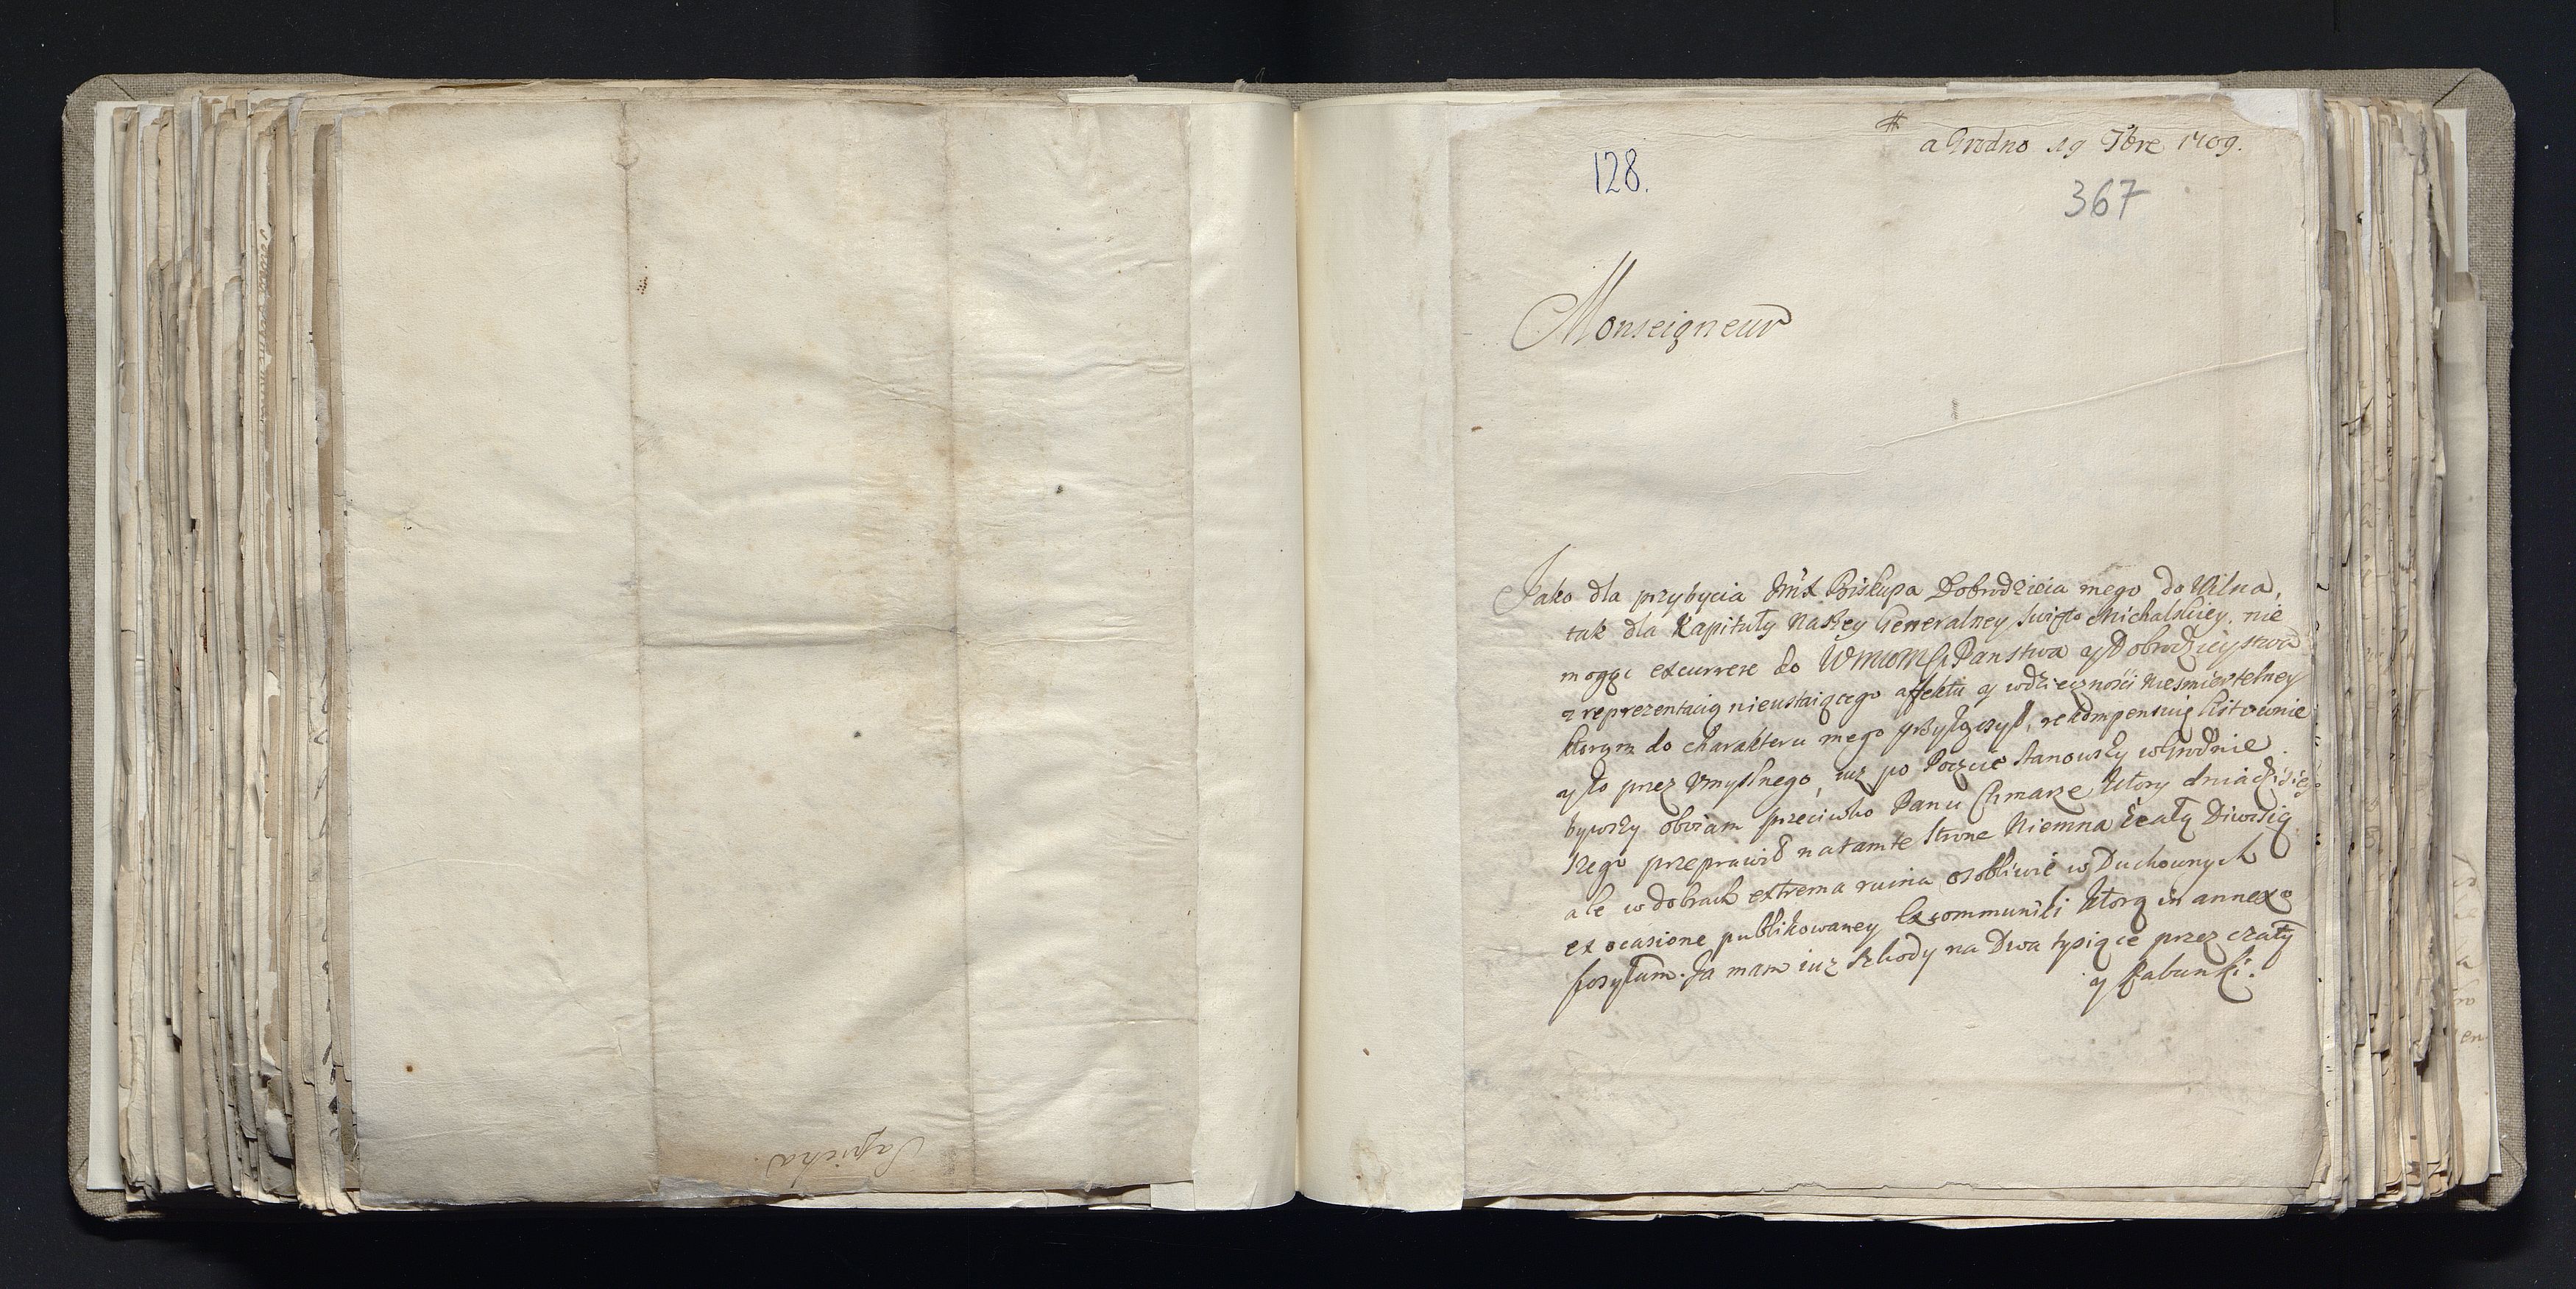 Sapieha
#
a Grodno 19 7bre 1709.
128.
367
Monseigneur
Jako dla przybycia Biskupa Dobrodzieia mego do Wilna,
tak dla Kapituły Naszey Generalney Swięto Michalskiey, nie
mogąc excurrere do Panstwa y Dobrodzieystwa
z reprezentacią nieustaiącego affektu y wdzięczności niesmiertelney
ktorym do charakteru mego przyłączył, rekompensuię listownie
y to przez Vmyslnego, iuz po Poczcie stanowszy w Grodnie.
bywszy obviam przeciwko Panu Chmarze ktory dnia dzisiey
szego przeprawił na tamte strone Niemna całą Diwisią
ale w dobrach extrema ruina osobliwie w Duchownych
ex ocasione publikowaney Excommuniki ktorą in annexo
posyłam. Ja mam iuz szkody na Dwa tysiące przez czaty
y Rabunki.